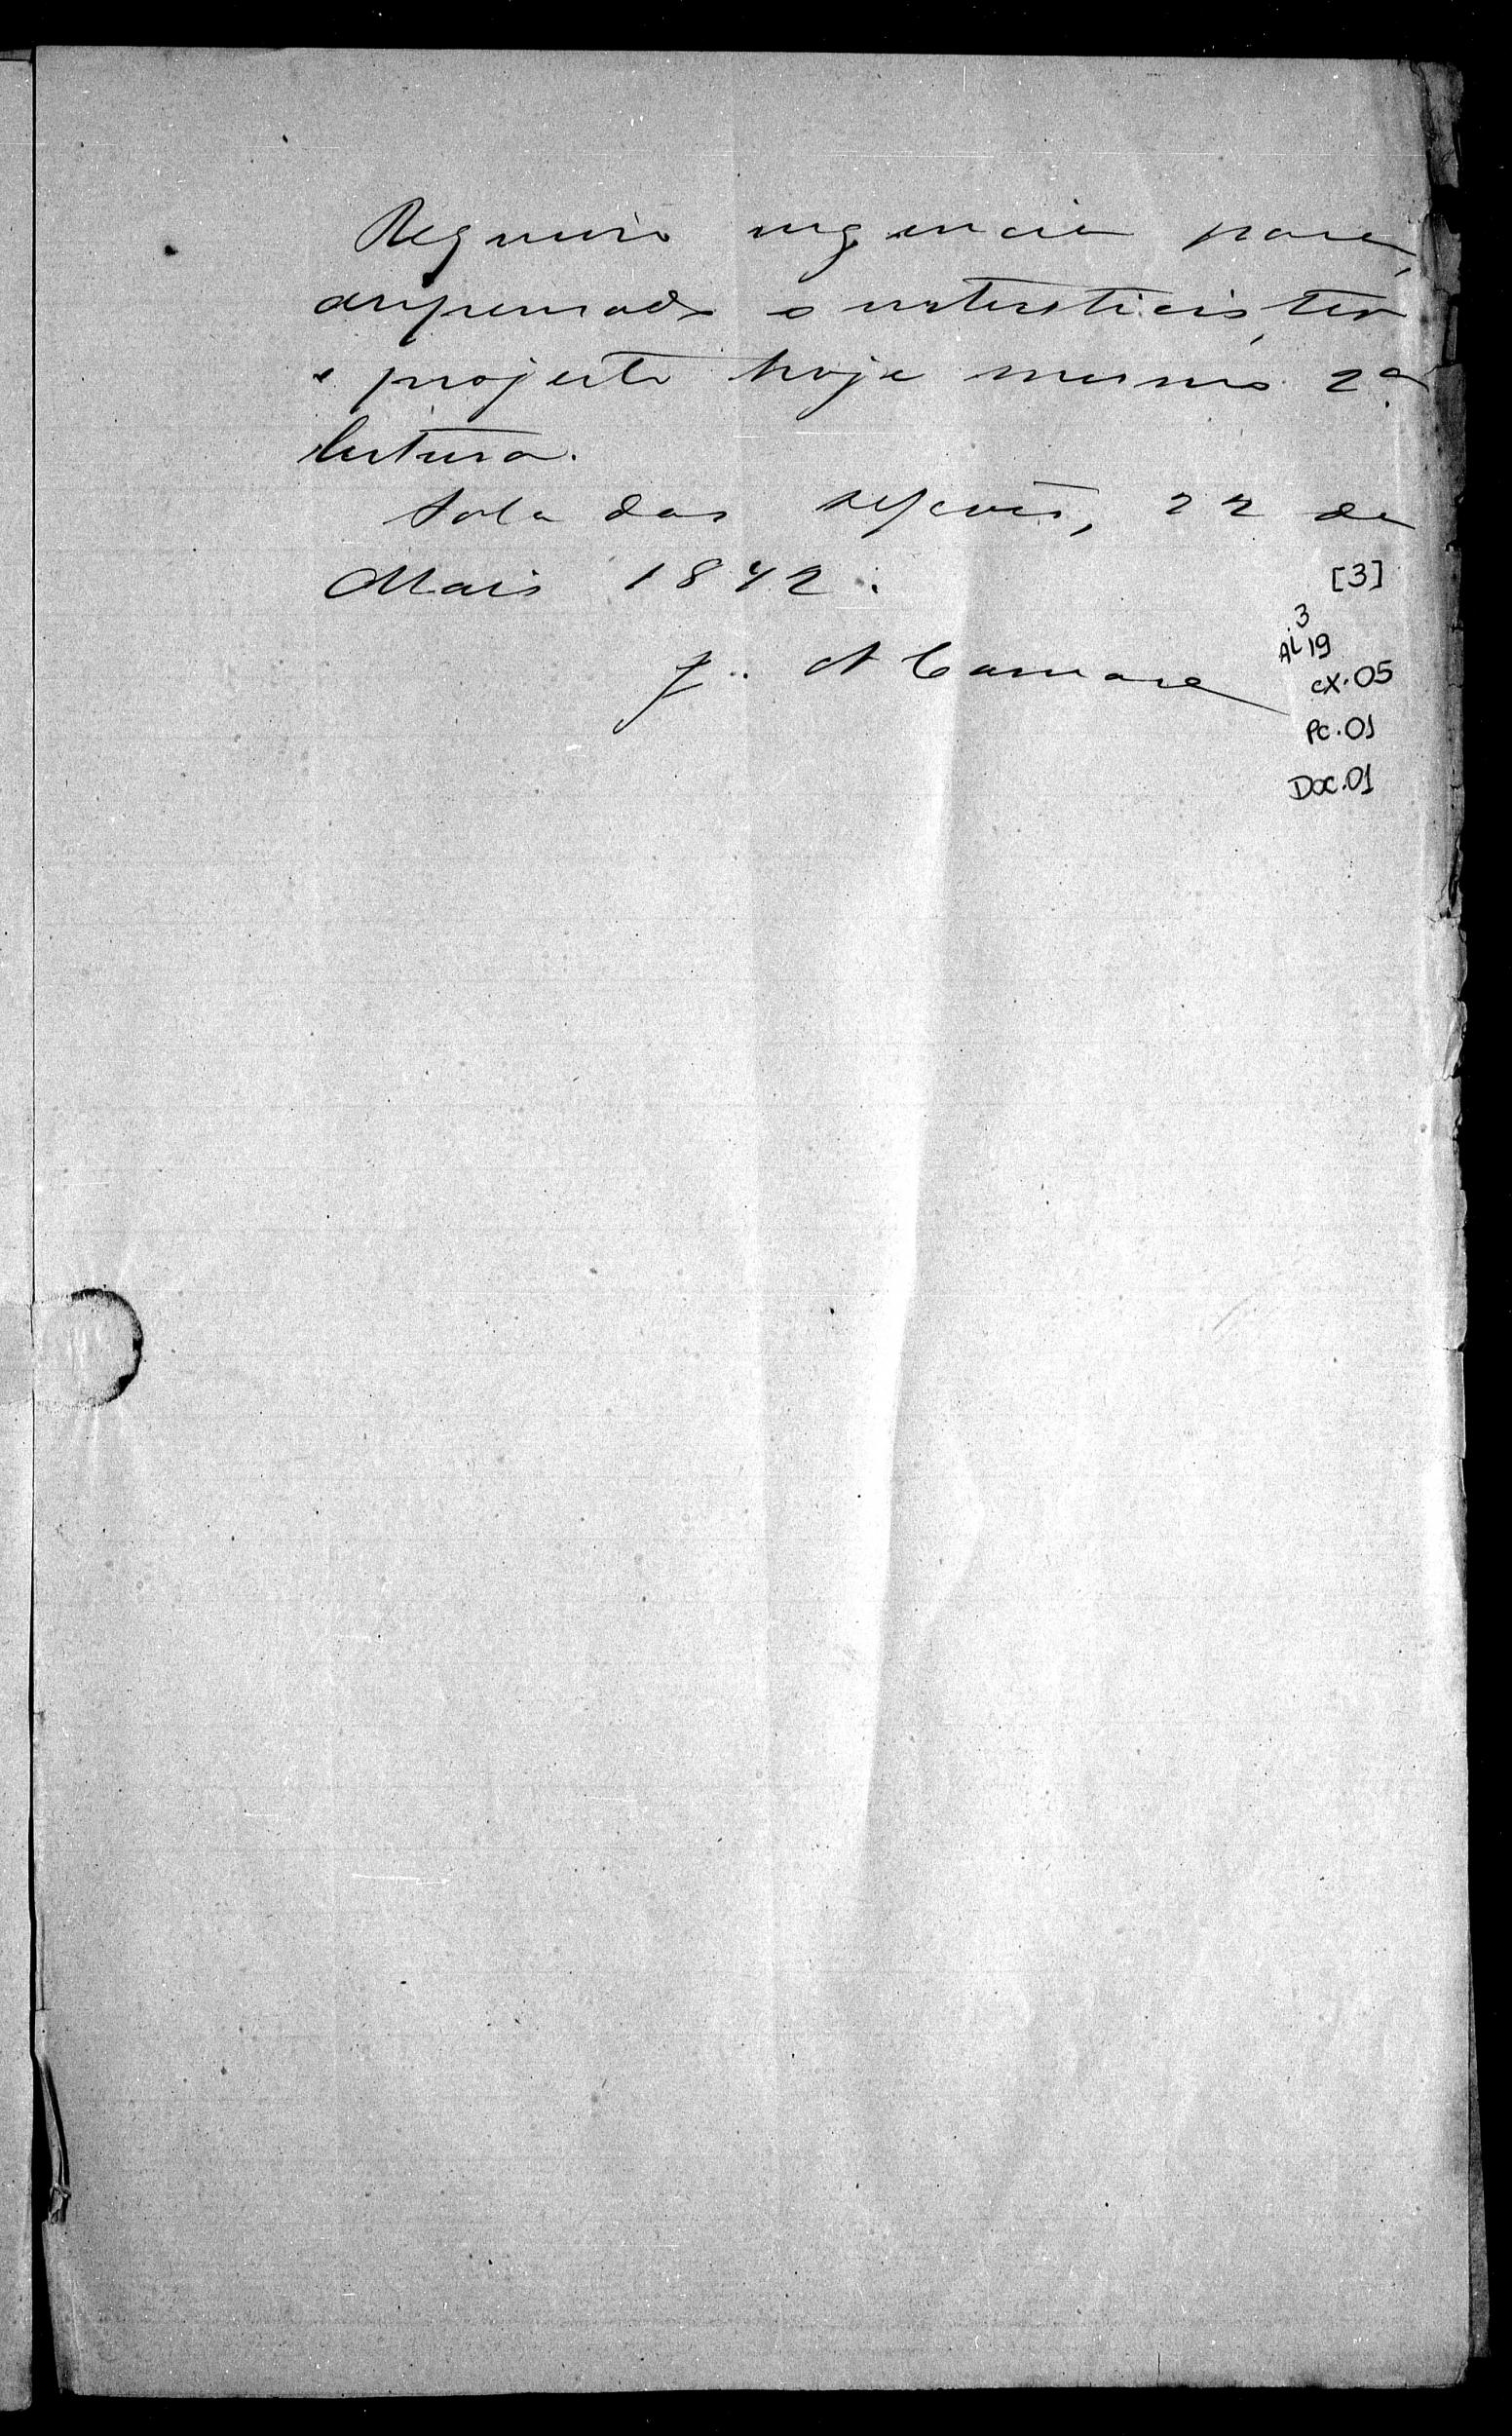 Requeiro urgencia para,
dispensado o intersticio, ter
o projecto hoje mesmo 2ª
leitura.
Sala das sessões, 22 de
Maio 1892.
[3]
.3
AL 19
J. A Camara
CX.05
PC.01
DOC.01